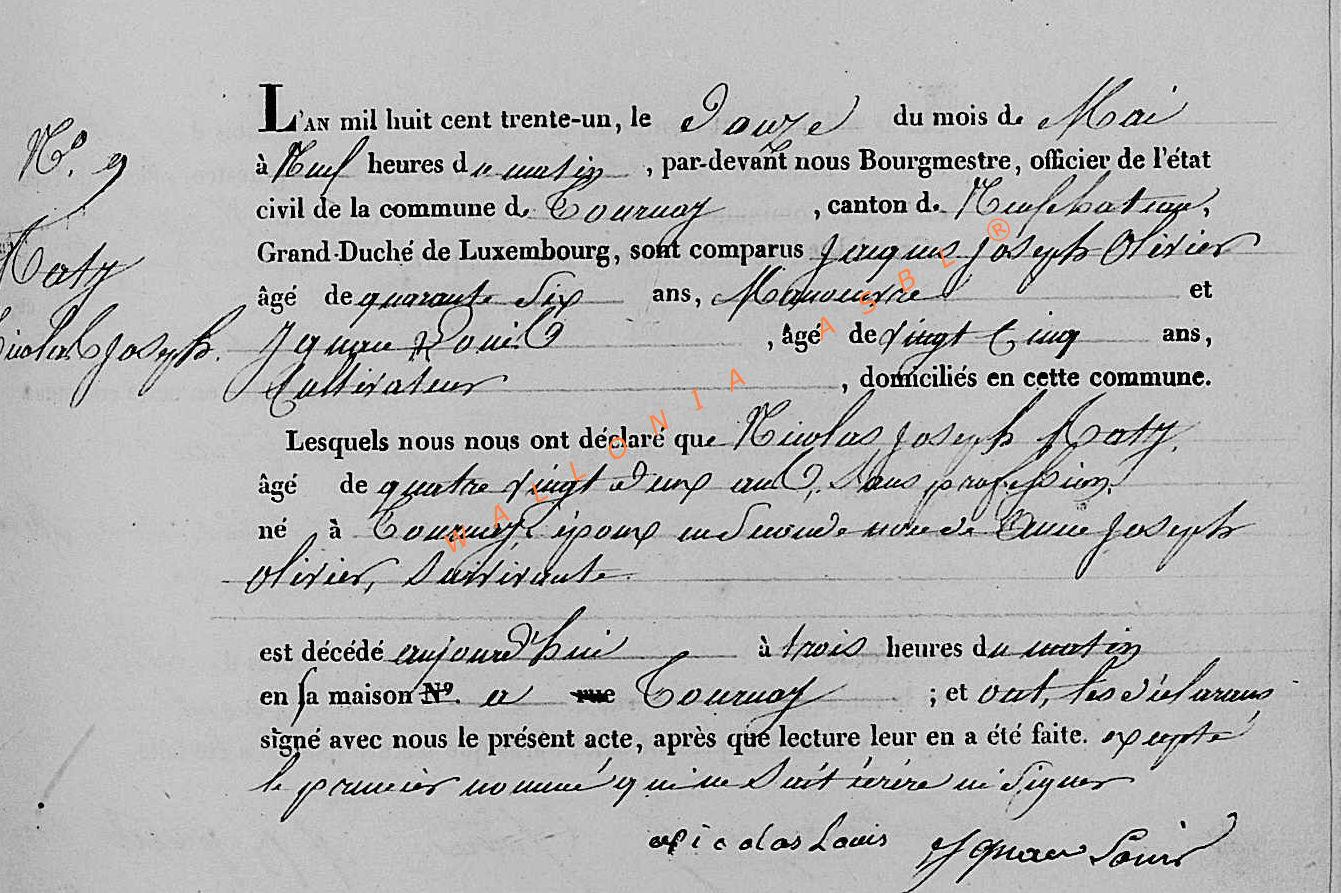 N° 9
Maty
Nicolas Joseph.
L'AN mil huit cent trente-un, le Douze du mois de Mai
à Neuf heures du matin, par-devant nous Bourgmestre, officier de l'état
civil de la commune de Tournay, canton de Neufchateau,
Grand-Duché de Luxembourg, sont comparus Jacques Joseph Olivier
âgé de quarante Six ans, Manoeuvre et
Ignace Louis, âgé de vingt Cinq ans,
Cultivateur, domiciliés en cette commune.
Lesquels nous nous ont déclaré que Nicolas Joseph Maty.
âgé de quatre vingt deux ans, Sans profession.
né à Tournay, époux en Seconde noce de Anne Joseph
Olivier, Survivante.
est décédé aujourd'hui à trois heures du matin
en sa maison N°. a rue Tournay; et ont, les déclarans
signé avec nous le présent acte, après que lecture leur en a été faite. excepté
le premier nommé qui ne Sait écrire ni Signer
Nicolas Louis Ignace Louis
WALLONIA ASBL ®